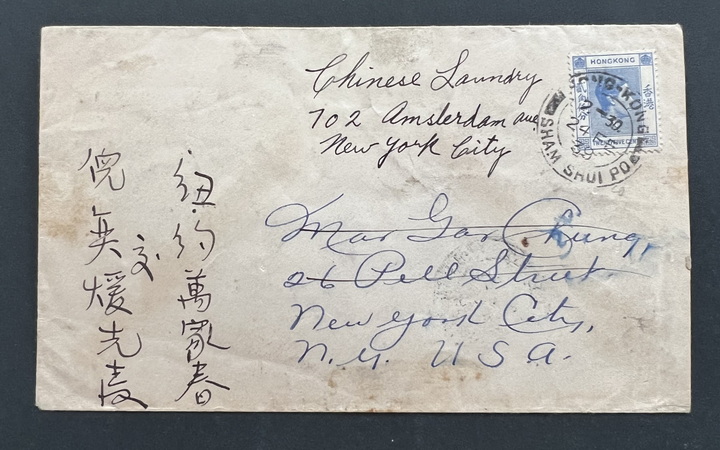 Chinese Laundry
702 Amsterdam ave
New York City
HONGKONG
香港
HONG-KONG
SHUI PO
Mar Gar Chung,
26 Pell Street.
New York City,
N.Y. U S A.
紐約萬家春
交
倪英煖先